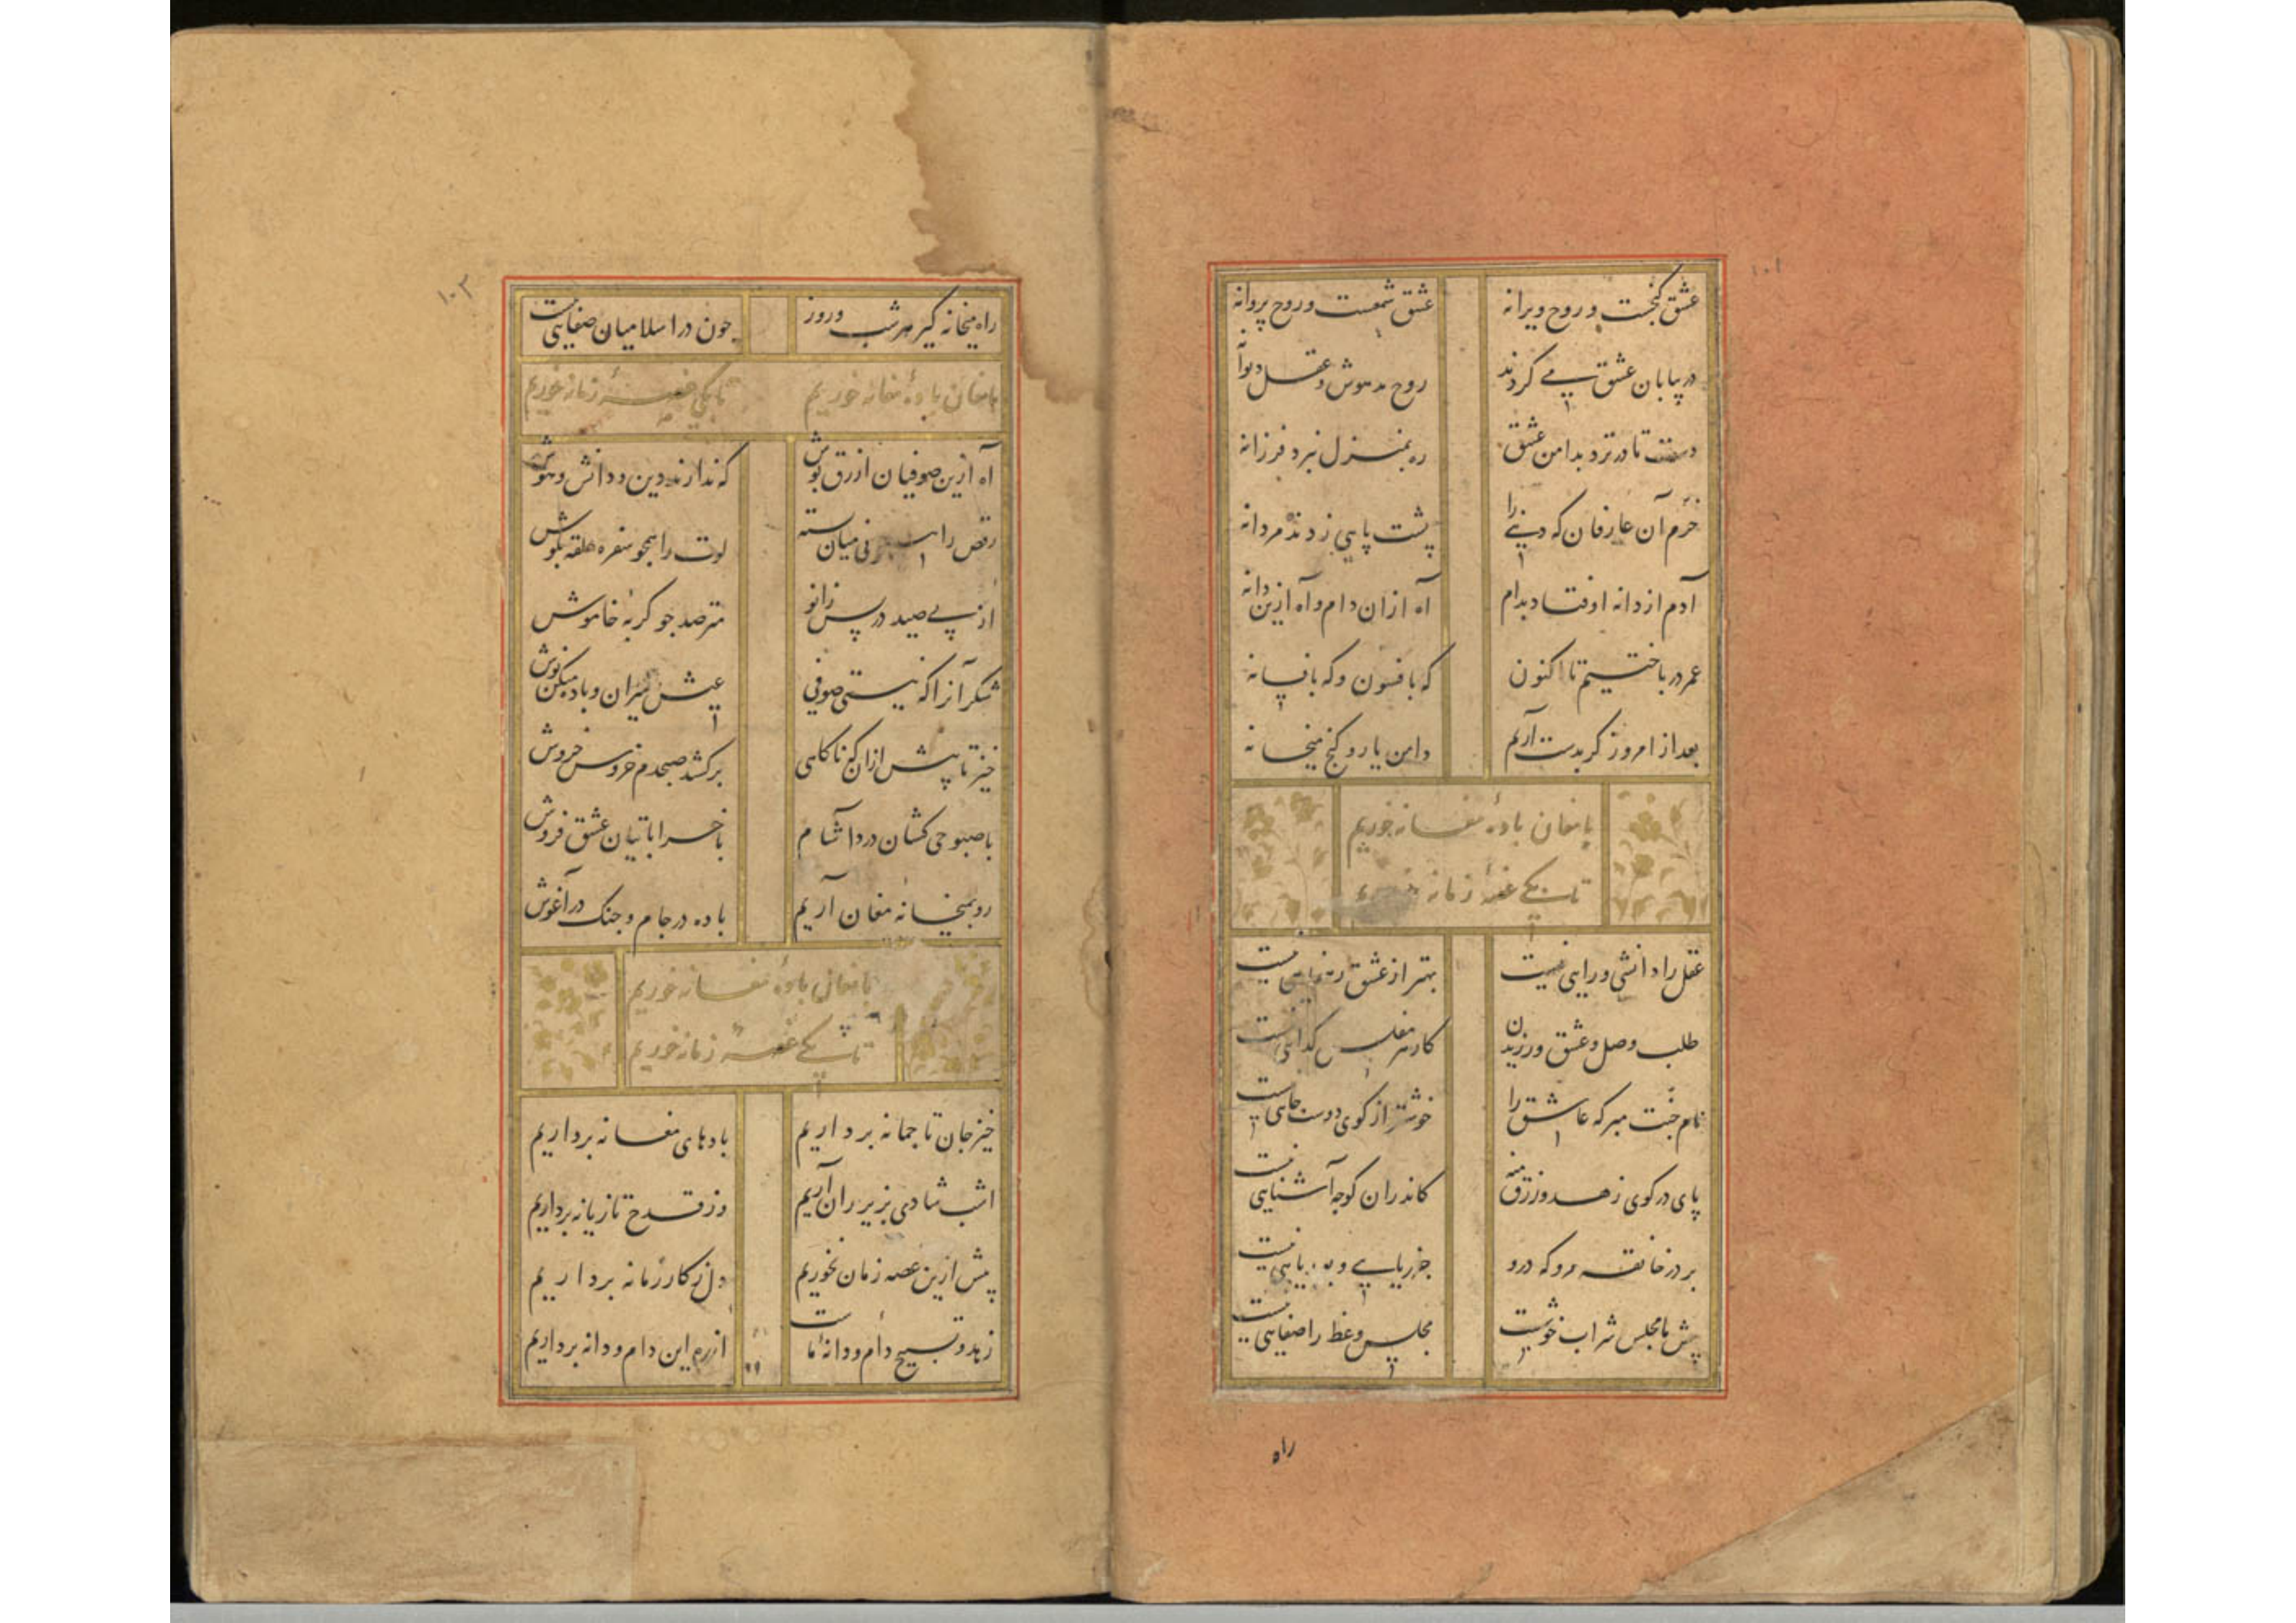 ۱۰۲
عشق گنجست و روح ویرانه عشق شمعست و روح پروانه
در بیابان عشق پی کردند روح مدهوش و عقل دیوانه
دست تا در نزد بدامن عشق ره بمنزل نبرد فرزانه
خرم آن عارفان که دنیی را پشت پایی زدند مردانه
آدم از دانه اوفتاد بدام آه ازان دام و آه ازین دانه
عمر در باختیم تا اکنون که بافسون و که بافسانه
بعد از امروز کر بدست آریم دامن یار و کنج میخانه
با مغان بادهٔ مغانه خوریم
تا بکی غصهٔ زمانه خوریم
عقل را دانشی و رایی نیست بهتر از عشق رهنمایی نیست
طلب وصل و عشق ورزیدن کار هر مفلس کدایی نیست
نام جنت مبر که عاشق را خوشتر از کوی دوست جایی نیست
پای در کوی زهد و زرق منه کاندران کوچه آشنایی نیست
بر در خانقه مرو که درو جز ریایی و بوریایی نیست
پیش ما مجلس شراب خوشست مجلس وعظ را صفایی نیست
راه
۱۰۳
راه میخانه کیر هر شب و روز چون در اسلامیان صفایی نیست
با مغان بادهٔ مغانه خوریم تا بکی غصهٔ زمانه خوریم
آه ازین صوفیان ازرق پوش که ندارند دین و دانش و هوش
رقص را همچو نی میان بسته لوت را همچو سفره حلقه بگوش
از پی صید در پس زانو مترصد چو کربهٔ خاموش
شکر آنرا که نیستی صوفی عیش میران و باده میکن نوش
خیز تا پیش ازان که ناکاهی برکشد صبحدم خروس خروش
با صبوحی کشان درد آشام با خراباتیان عشق فروش
رو بمیخانه مغان آریم باده در جام و چنک در آغوش
با مغان بادهٔ مغانه خوریم
تا بکی غصهٔ زمانه خوریم
خیز جان تا چمانه برداریم بادهای مغانه برداریم
اسب شادی بزیر ران آریم وز قدح تازیانه برداریم
بیش ازین غصه زمان نخوریم دل ز کار زمانه برداریم
زهد و تسبیح دام و دانهٔ ماست از ره این دام و دانه برداریم